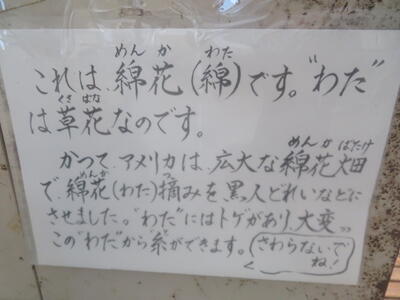 これは、綿花(綿)です。"わた"
は草花なのです。
かつて、アメリカは、広大な綿花畑
で、綿花(わた)摘みを黒人どれいなどに
させました。"わた"にはトゲがあり、大変〃
この"わた"から糸ができます。(さわらないで
ね!)